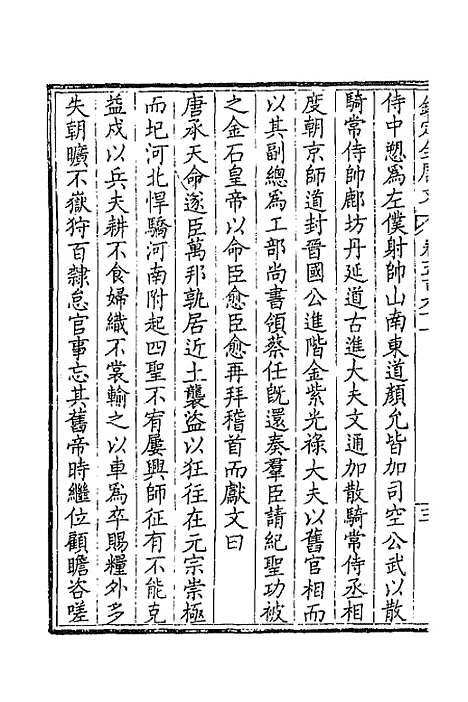 侍中愬為左僕射帥山南東道顏允皆加司空公武以散
騎常侍帥鄜坊丹延道古進大夫文通加散騎常侍丞相
度朝京師道封晉國公進階金紫光祿大夫以舊官相而
以其副總為工部尚書領蔡任既還奏羣臣請紀聖功被
之金石皇帝以命臣愈臣愈再拜稽首而獻文曰
唐承天命遂臣萬邦孰居近土襲盜以狂往在元宗崇極
而圮河北悍驕河南附起四聖不宥屢興師征有不能克
益戍以兵夫耕不食婦織不裳輸之以車為卒賜糧外多
失朝曠不嶽狩百隸怠官事忘其舊帝時繼位顧瞻咨嗟